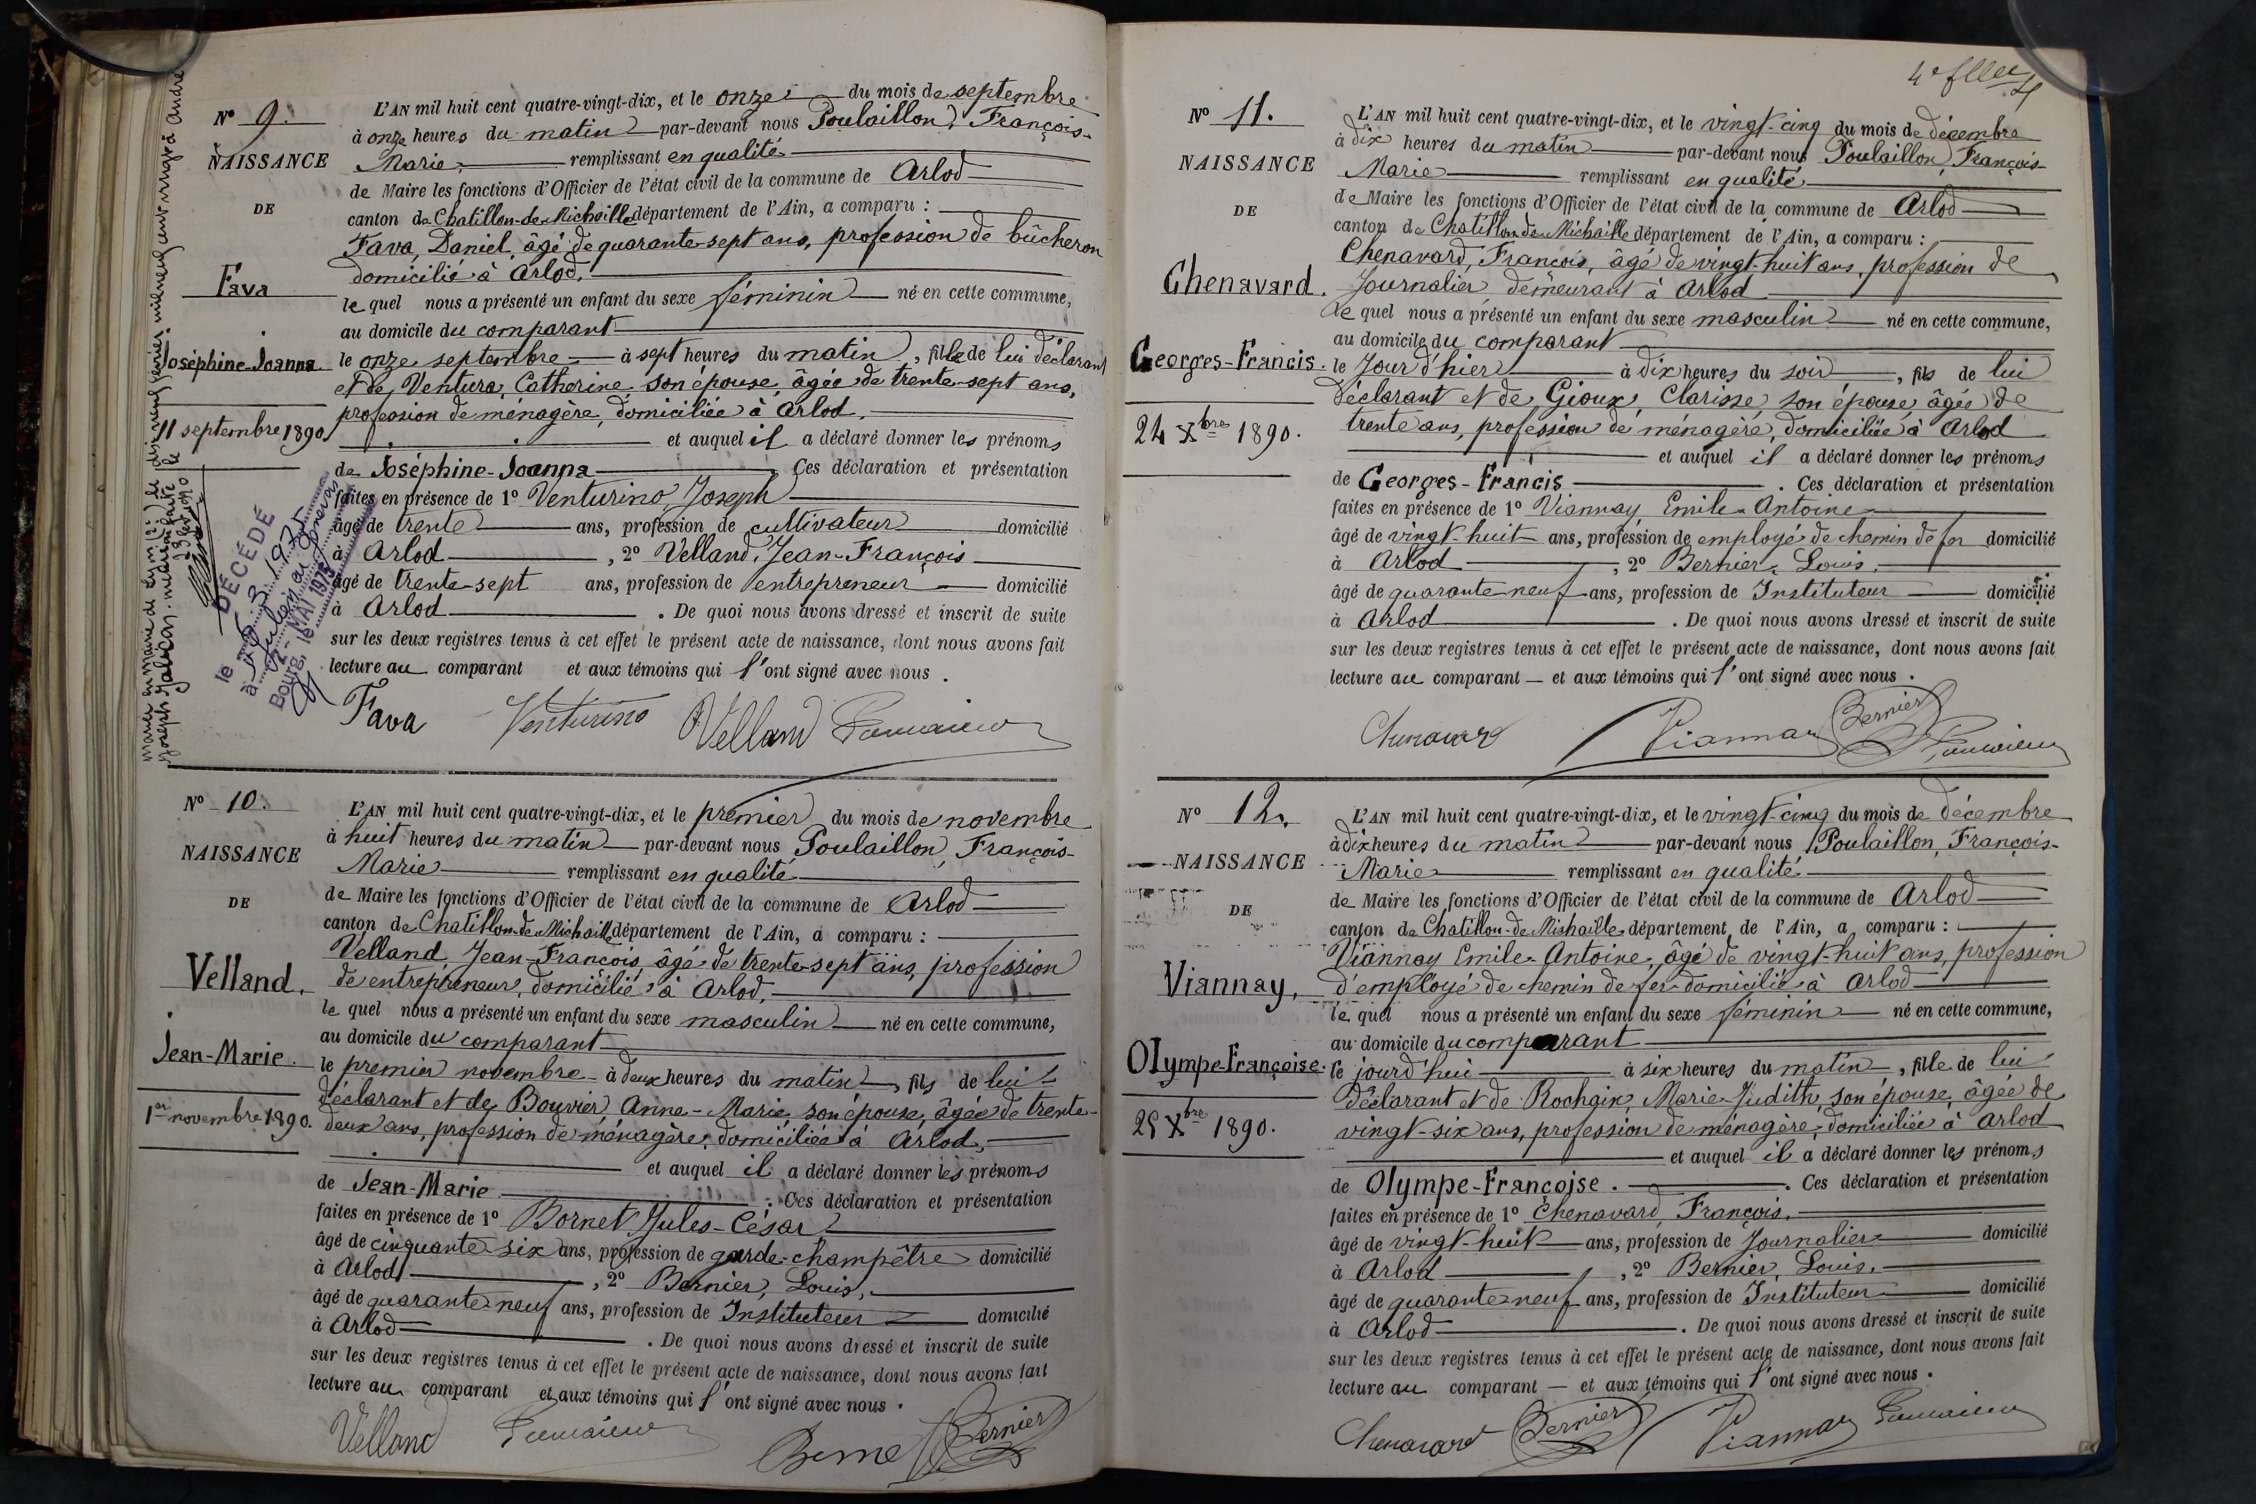 N° 9.
NAISSANCE
DE
Fava
Joséphine-Joanna
11 septembre 1890
L'AN mil huit cent quatre-vingt-dix, et le onze du mois de septembre
à onze heures du matin par-devant nous Poulaillon, François-
Marie remplissant en qualité
de Maire les fonctions d'Officier de l'état civil de la commune de Arlod
canton de Chatillon-de-Michaille département de l'Ain, a comparu :
Fava, Daniel, âgé de quarante sept ans, profession de bûcheron
domicilié à Arlod.
le quel nous a présenté un enfant du sexe féminin né en cette commune,
au domicile du comparant
le onze septembre à sept heures du matin, fille de lui déclarant
et de Ventura, Catherine son épouse âgée de trente-sept ans,
profession de ménagère, domiciliée à Arlod.
et auquel il a déclaré donner les prénoms
de Joséphine-Joanna Ces déclaration et présentation
faites en présence de 1° Venturino, Joseph
âgé de trente ans, profession de cultivateur domicilié
à Arlod, 2° Velland, Jean-François
âgé de trente-sept ans, profession de entrepreneur domicilié
à Arlod. De quoi nous avons dressé et inscrit de suite
sur les deux registres tenus à cet effet le présent acte de naissance, dont nous avons fait
lecture au comparant et aux témoins qui l'ont signé avec nous.
Fava Venturino Velland
DÉCÉDÉ
Bourg, le 2 MAI 1975
N° 10.
NAISSANCE
DE
Velland.
Jean-Marie.
1er novembre 1890.
L'AN mil huit cent quatre-vingt-dix, et le premier du mois de novembre
à huit heures du matin par-devant nous Poulaillon, François-
Marie remplissant en qualité
de Maire les fonctions d'Officier de l'état civil de la commune de Arlod
canton de Chatillon-de-Michaille département de l'Ain, a comparu :
Velland, Jean-François, âgé de trente-sept ans, profession
de entrepreneur, domicilié à Arlod,
le quel nous a présenté un enfant du sexe masculin né en cette commune,
au domicile du comparant
le premier novembre à deux heures du matin, fils de lui
déclarant et de Bouvier Anne-Marie son épouse, âgée de trente-
deux ans, profession de ménagère, domiciliée à Arlod,
et auquel il a déclaré donner les prénoms
de Jean-Marie. Ces déclaration et présentation
faites en présence de 1° Bornet, Jules-César,
âgé de cinquante-six ans, profession de garde-champêtre domicilié
à Arlod, 2° Bernier, Louis,
âgé de quarante-neuf ans, profession de Instituteur domicilié
à Arlod. De quoi nous avons dressé et inscrit de suite
sur les deux registres tenus à cet effet le présent acte de naissance, dont nous avons fait
lecture au comparant et aux témoins qui l'ont signé avec nous.
Velland Bornet Bernier
N° 11.
NAISSANCE
DE
Chenavard.
Georges-Francis.
24 Xbre 1890.
L'AN mil huit cent quatre-vingt-dix, et le vingt-cinq du mois de décembre
à dix heures du matin par-devant nous Poulaillon, François-
Marie remplissant en qualité
de Maire les fonctions d'Officier de l'état civil de la commune de Arlod
canton de Chatillon de Michaille département de l'Ain, a comparu :
Chenavard, François, âgé de vingt-huit ans, profession de
Journalier, demeurant à Arlod
le quel nous a présenté un enfant du sexe masculin né en cette commune,
au domicile du comparant
le Jour d'hier à dix heures du soir, fils de lui
déclarant et de Gioux, Clarisse son épouse âgée de
trente ans, profession de ménagère, domiciliée à Arlod
et auquel il a déclaré donner les prénoms
de Georges-Francis. Ces déclaration et présentation
faites en présence de 1° Viannay Emile-Antoine
âgé de vingt-huit ans, profession de employé de chemin de fer domicilié
à Arlod, 2° Bernier, Louis.
âgé de quarante neuf ans, profession de Instituteur domicilié
à Arlod. De quoi nous avons dressé et inscrit de suite
sur les deux registres tenus à cet effet le présent acte de naissance, dont nous avons fait
lecture au comparant et aux témoins qui l'ont signé avec nous.
Chenavard Viannay Bernier
N° 12.
NAISSANCE
DE
Viannay,
Olympe-Françoise.
25 Xbre 1890.
L'AN mil huit cent quatre-vingt-dix, et le vingt-cinq du mois de décembre
à dix heures du matin par-devant nous Poulaillon, François-
Marie remplissant en qualité
de Maire les fonctions d'Officier de l'état civil de la commune de Arlod
canton de Chatillon-de-Michaille département de l'Ain, a comparu :
Viannay Emile-Antoine, âgé de vingt-huit ans, profession
d'employé de chemin de fer domicilié à Arlod
le quel nous a présenté un enfant du sexe féminin né en cette commune,
au domicile du comparant
le jourd'hui à six heures du matin, fille de lui
déclarant et de Rochaix, Marie-Judith, son épouse, âgée de
vingt-six ans, profession de ménagère, domiciliée à Arlod
et auquel il a déclaré donner les prénoms
de Olympe-Françoise. Ces déclaration et présentation
faites en présence de 1° Chenavard, François.
âgé de vingt-huit ans, profession de Journalier domicilié
à Arlod, 2° Bernier, Louis.
âgé de quarante-neuf ans, profession de Instituteur domicilié
à Arlod. De quoi nous avons dressé et inscrit de suite
sur les deux registres tenus à cet effet le présent acte de naissance, dont nous avons fait
lecture au comparant — et aux témoins qui l'ont signé avec nous.
Chenavard Bernier Viannay